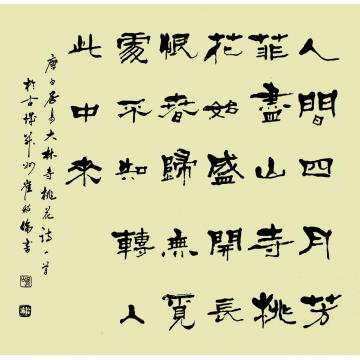 人間四月芳
菲盡山寺桃
花始盛開長
恨春歸無覓
處不知轉入
此中来
唐白居易大林寺桃花詩一首
於古城并州崔書